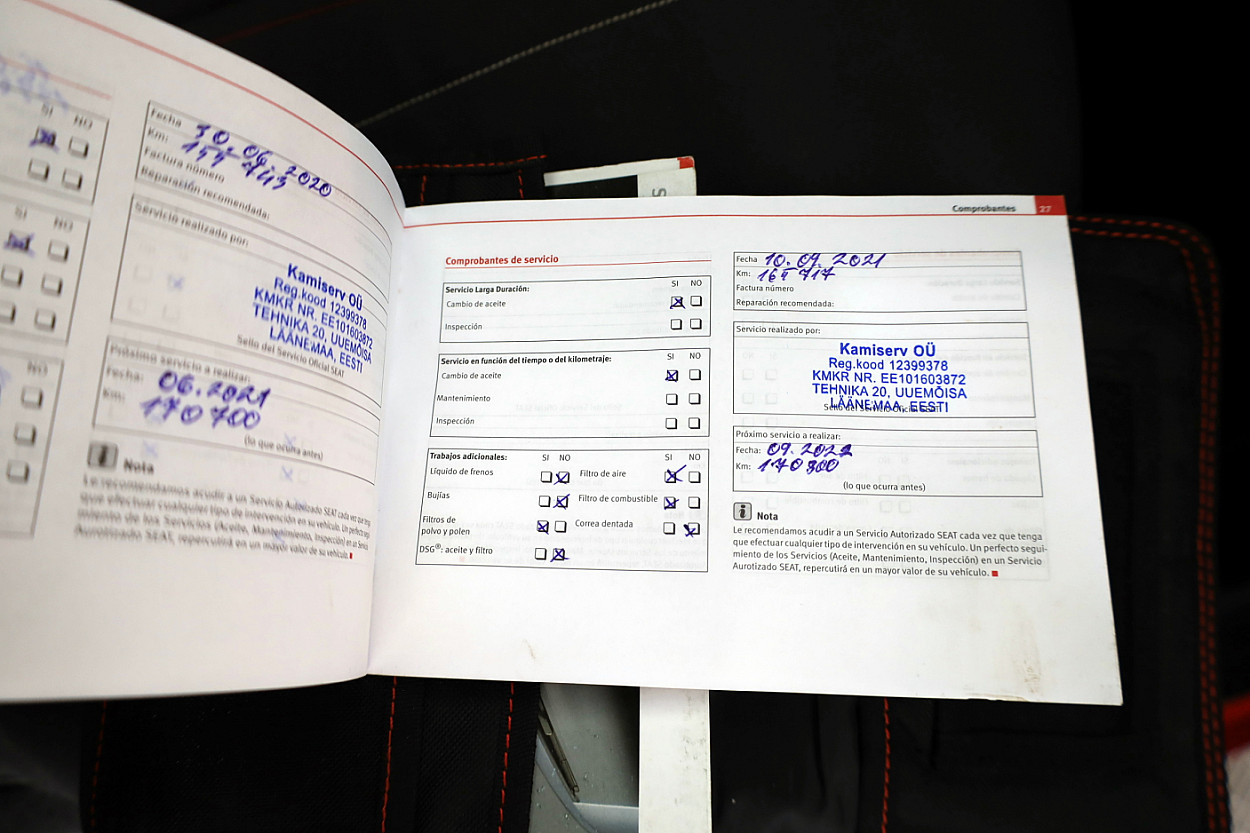 SI NO
SI NO
NO
Fecha 30.06.2020
Km:
Factura número
Reparación recomendada:
Servicio realizado por:
Kamiserv OÜ
Reg.kood 12399378
KMKR NR. EE101603872
TEHNIKA 20, UUEMÕISA
LÄÄNEMAA, EESTI
Sello del Servicio Oficial SEAT
Próximo servicio a realizar:
Fecha: 06.2021
Km: 170700
(lo que ocurra antes)
Nota
Le recomendamos acudir a un Servicio Autorizado SEAT cada vez que tenga
que efectuar cualquier tipo de intervención en su vehículo. Un perfecto segui-
miento de los Servicios (Aceite, Mantenimiento, Inspección) en un Servicio
Aurotizado SEAT, repercutirá en un mayor valor de su vehículo.
S
Comprobantes 27
Comprobantes de servicio
SI NO
Servicio Larga Duración:
Cambio de aceite
Inspección
SI NO
Servicio en función del tiempo o del kilometraje:
Cambio de aceite
Mantenimiento
Inspección
Trabajos adicionales: SI NO SI NO
Líquido de frenos Filtro de aire
Bujías Filtro de combustible
Filtros de
polvo y polen Correa dentada
DSG®: aceite y filtro
Fecha 10.09.2021
Km: 164 717
Factura número
Reparación recomendada:
Servicio realizado por:
Kamiserv OÜ
Reg.kood 12399378
KMKR NR. EE101603872
TEHNIKA 20, UUEMÕISA
LÄÄNEMAA, EESTI
Sello del Servicio Oficial
Próximo servicio a realizar:
Fecha: 09.2022
Km:
(lo que ocurra antes)
Nota
Le recomendamos acudir a un Servicio Autorizado SEAT cada vez que tenga
que efectuar cualquier tipo de intervención en su vehículo. Un perfecto segui-
miento de los Servicios (Aceite, Mantenimiento, Inspección) en un Servicio
Aurotizado SEAT, repercutirá en un mayor valor de su vehículo.